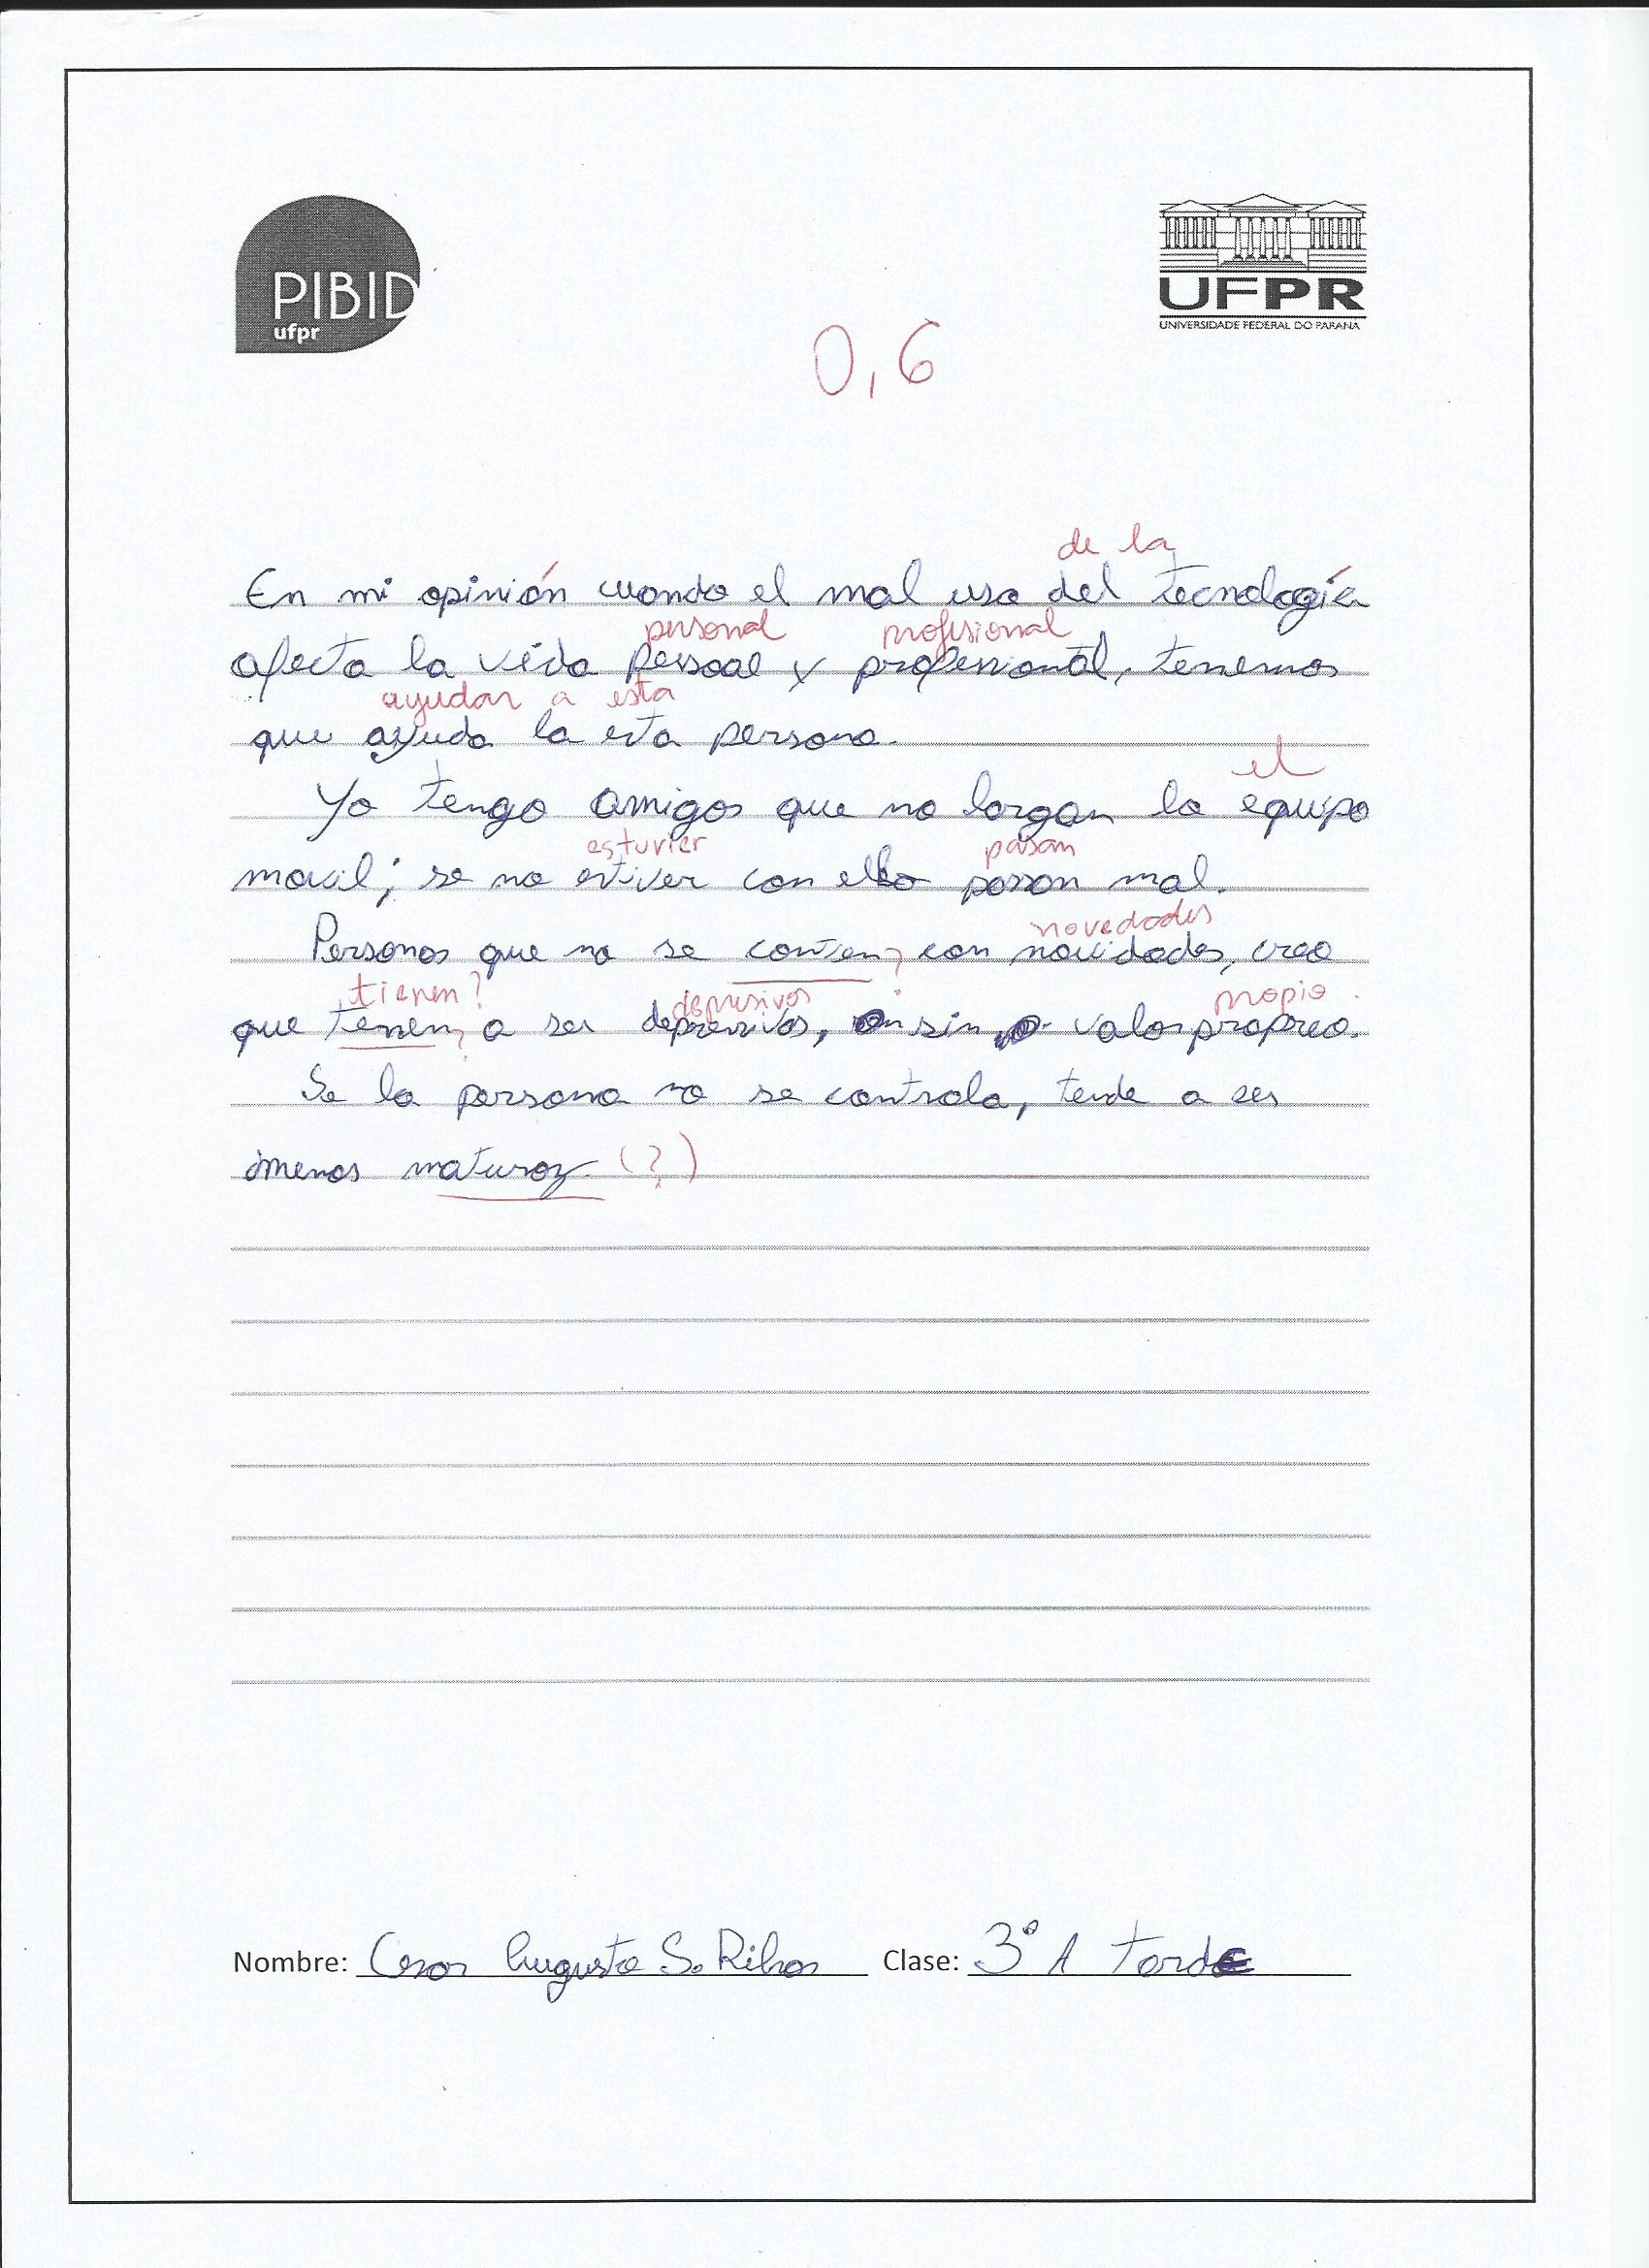 PIBID
ufpr
UFPR
UNIVERSIDADE FEDERAL DO PARANÁ
0,6
de la
En mi opinión cuando el mal uso del tecnología
personal profisional
afecta la vida pessoal y professional, tenemos
ayudar a esta
que ayuda la esta persona.
el
Yo tengo amigos que no largan la equipo
estuvier pasan
movil; se no estiver con ello passan mal.
novedades
Personas que no se conten? con novidades, creo
tienen? depresivos propio
que tenen? a ser depressivos, sin valor propreo.
Se la persona no se controla, tende a ser
menos maturoz (?)
Nombre: Cesar Augusto S. Clase: 3º A tarde